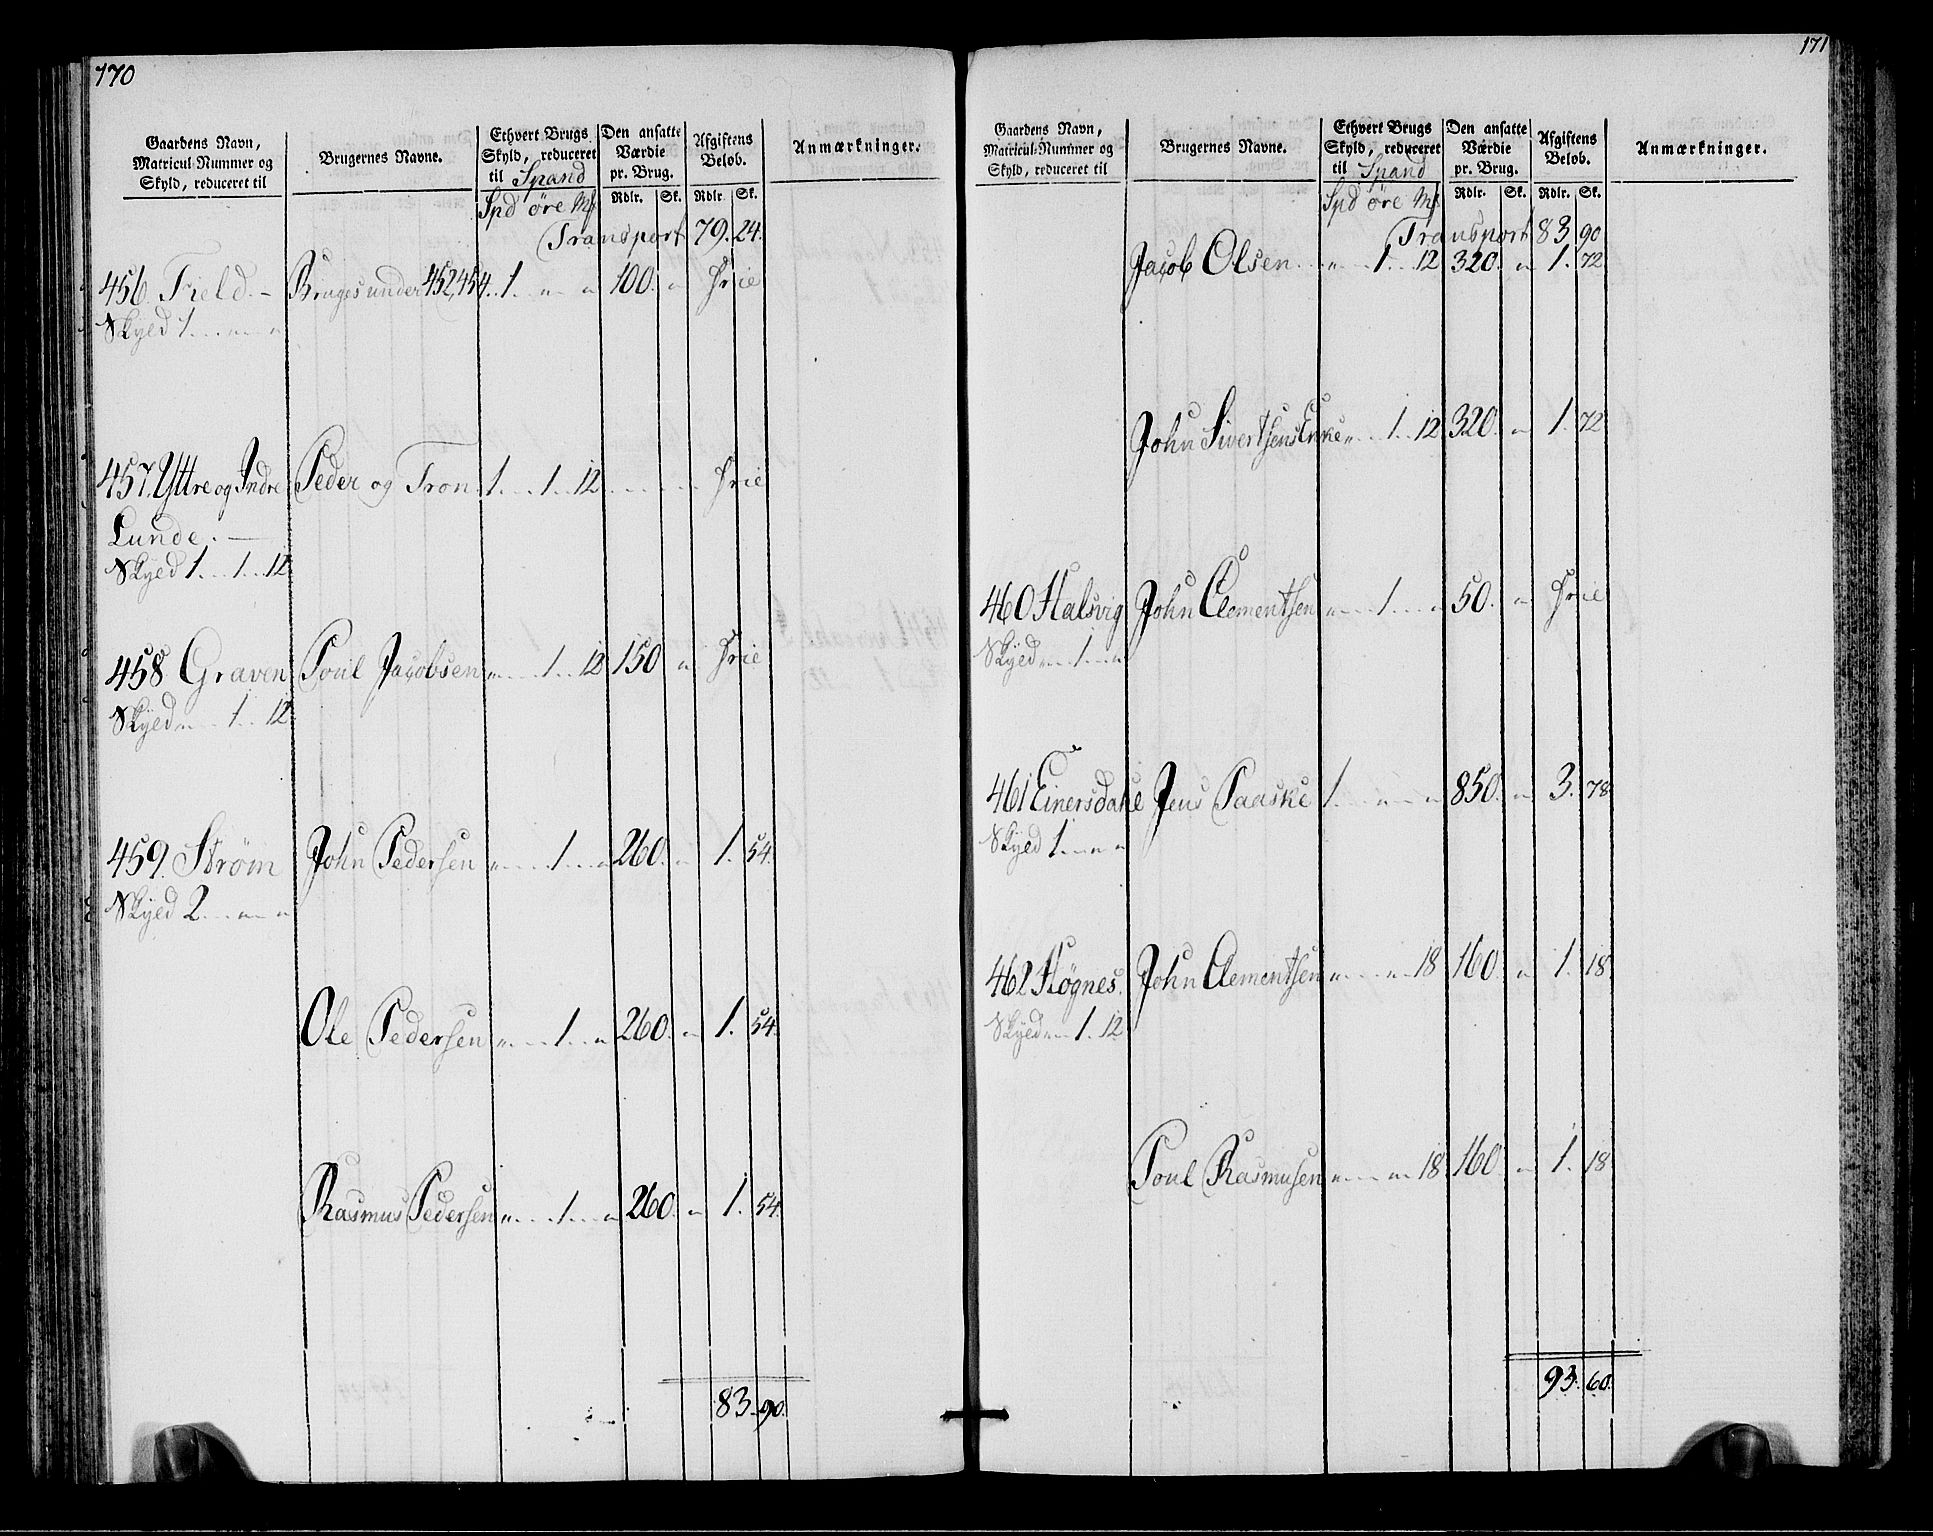 170
Gaardens Navn,
Matricul-Nummer og
Skyld, reduceret til
Brugernes Navne.
Ethvert Brugs
Skyld, reduceret
til Spand
Den ansatte
Værdie
pr. Brug.
Afgiftens
Beløb.
Anmærkninger.
Spd øre Mk
Rdlr. Sk. Rdlr. Sk.
Transport 79. 24.
456. Field. - Bruges under 452, 454. 1. " " 100. " Frie
Skyld 1. " "
457. Yttre og Indre Peder og Tron 1. 1. 12 Frie
Lunde.
Skyld 1. 1. 12
458 Graven Poul Jacobsen " 1. 12 150 " Frie
Skyld " 1. 12
459. Strøm John Pedersen " 1. " 260. " 1. 54.
Skyld 2. " "
Ole Pedersen " 1. " 260. " 1. 54.
Rasmus Pedersen " 1. " 260. " 1. 54.
83. 90.
171
Gaardens Navn,
Matricul-Nummer og
Skyld, reduceret til
Brugernes Navne.
Ethvert Brugs
Skyld, reduceret
til Spand
Den ansatte
Værdie
pr. Brug.
Afgiftens
Beløb.
Anmærkninger.
Spd øre Mk
Rdlr. Sk. Rdlr. Sk.
Transport 83. 90
Jacob Olsen " 1. 12 320. " 1. 72
John Sivertsens Enke " 1. 12 320. " 1. 72
460 Halsvig John Clementsen " 1. " 50. " Frie
Skyld " 1. "
461 Einersdahl Jens Paaske 1. " " 850. " 3. 78
Skyld 1. " "
462 Høgnes. John Clementsen " " 18 160. " 1. 18.
Skyld " 1. 12
Poul Rasmusen " " 18 160. " 1. 18.
93. 60.